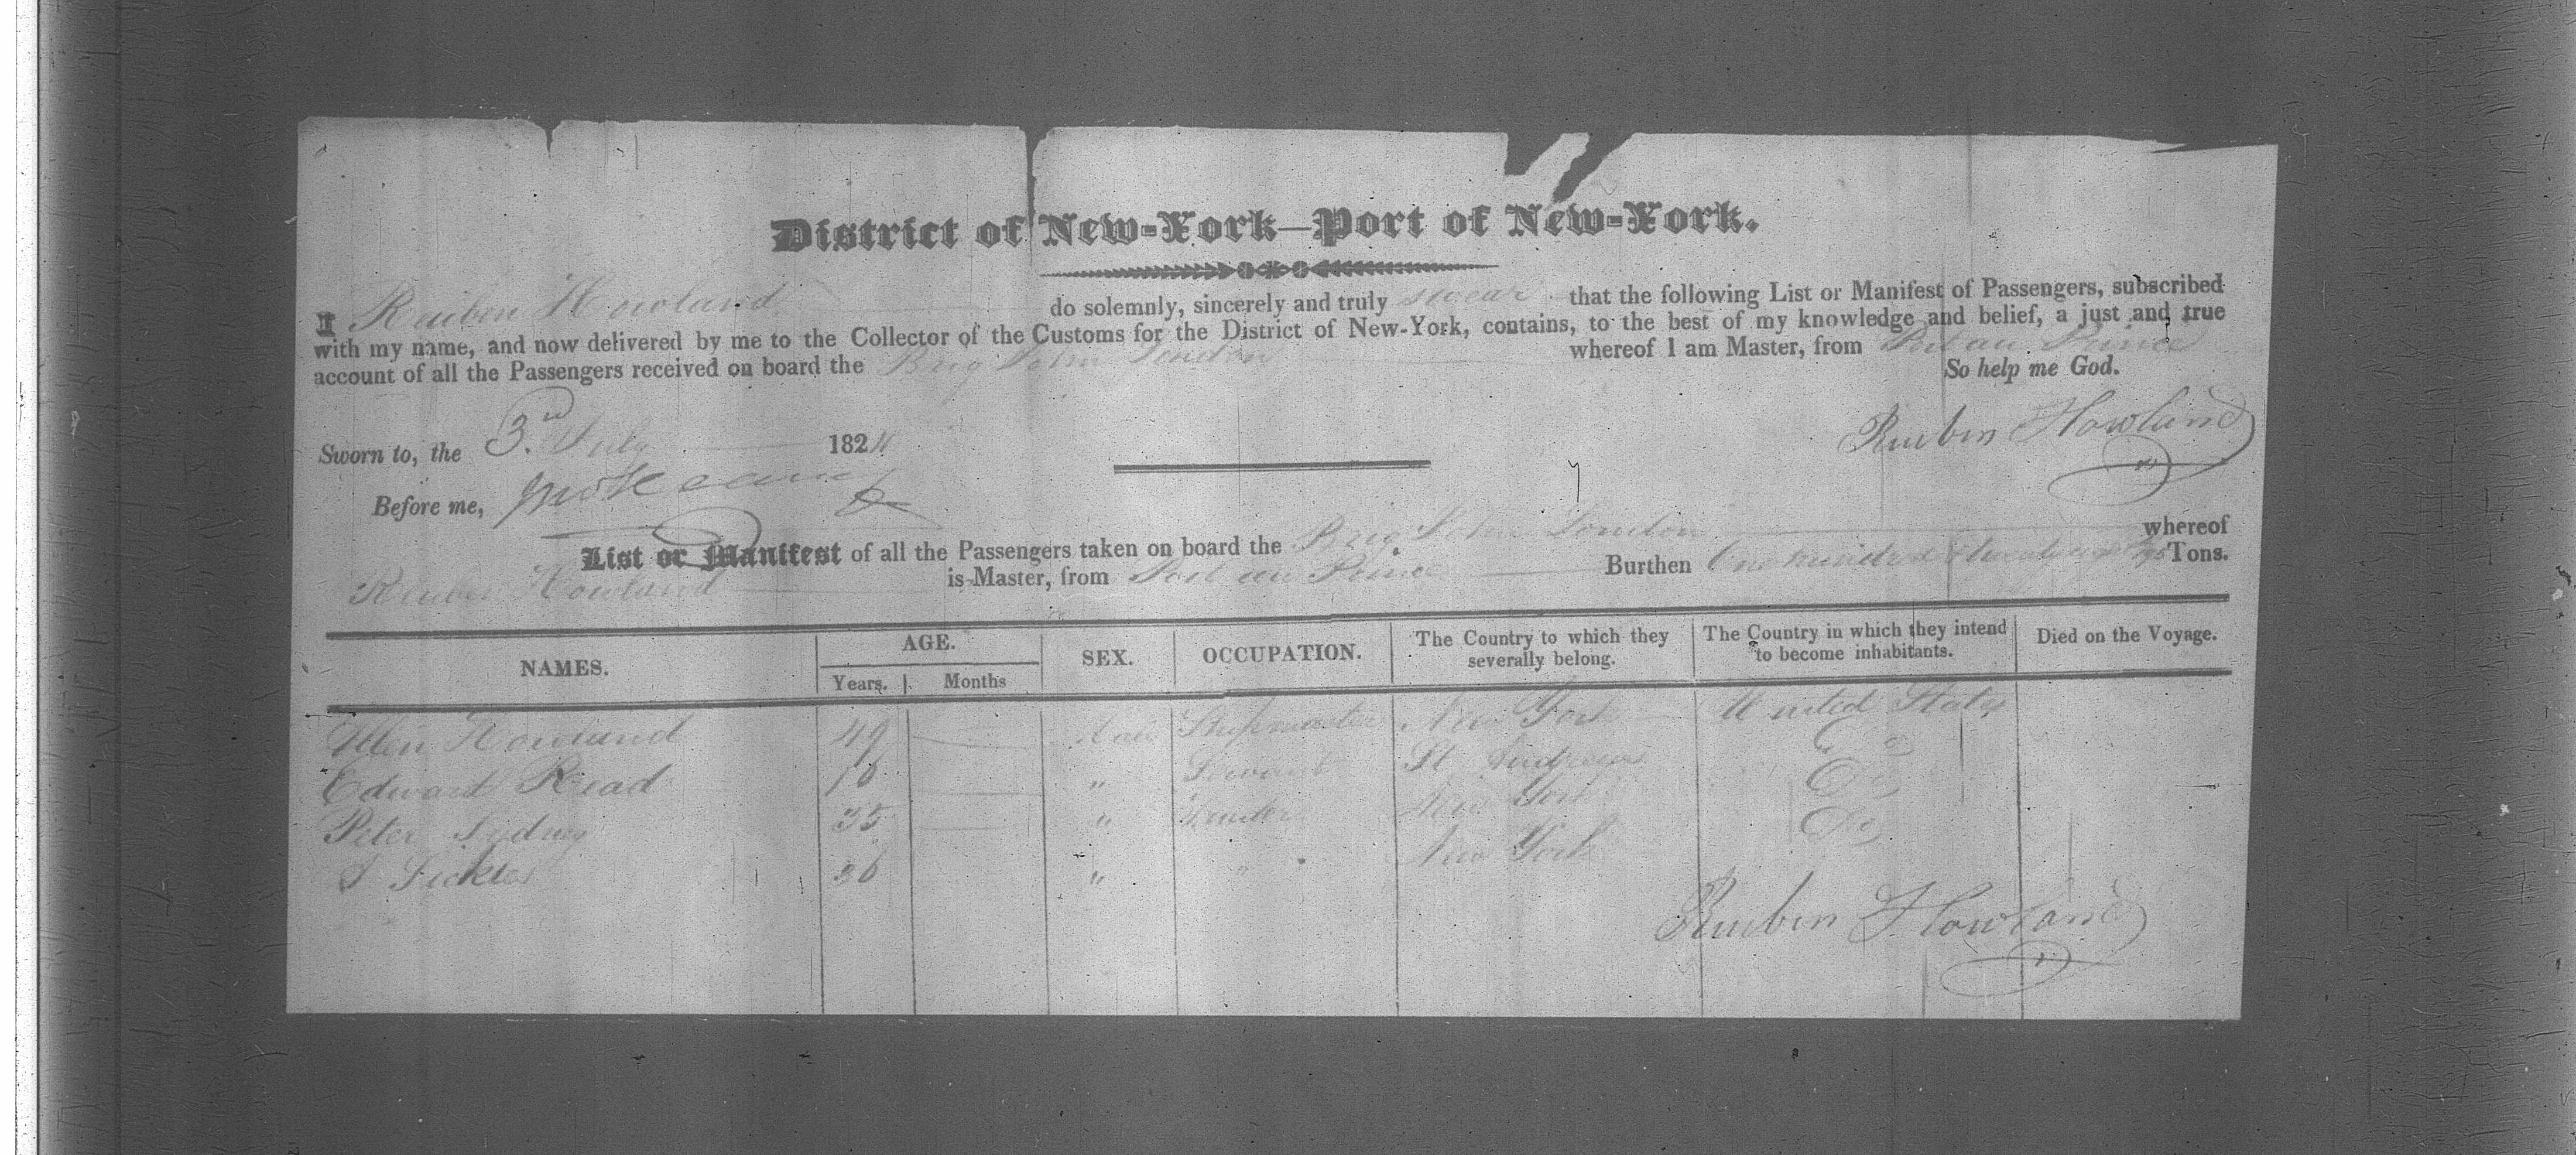 District of New-York—Port of New-York.
I Reuben Howland do solemnly, sincerely and truly swear that the following List or Manifest of Passengers, subscribed
with my name, and now delivered by me to the Collector of the Customs for the District of New-York, contains, to the best of my knowledge and belief, a just and true
account of all the Passengers received on board the Brig John London whereof I am Master, from Port au Prince
So help me God.
Sworn to, the 3rd July 1824 Reuben Howland
Before me,
List or Manifest of all the Passengers taken on board the Brig John London whereof
Reuben Howland is Master, from Port au Prince Burthen One hundred & Tons.
NAMES. AGE. Years. Months SEX. OCCUPATION. The Country to which they severally belong. The Country in which they intend to become inhabitants. Died on the Voyage.
Allen Howland 49 Male Shipmaster New York United States
Edward Read " Servant St Do
Peter Sydney 35 " New York Do
Sickles 36 " " New York Do
Reuben Howland